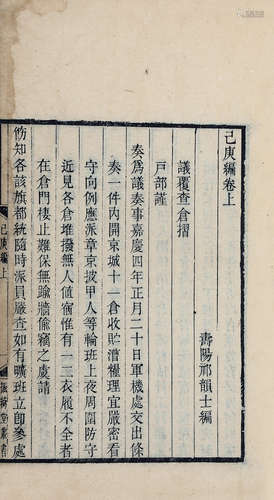 己庚編卷上
壽陽祁韻士編
議覆查倉摺
戶部謹
奏爲議奏事嘉慶四年正月二十日軍機處交出條
奏一件內開京城十一倉收貯漕糧理宜嚴密看
守向例應派章京披甲人等輪班上夜周圍防守
近見各倉堆撥無人値宿惟有一二衣履不全者
在倉門棲止難保無踰牆偷竊之虞請
飭知各該旗都統隨時派員嚴查如有曠班立卽參處
己庚編 上
振綺堂叢書